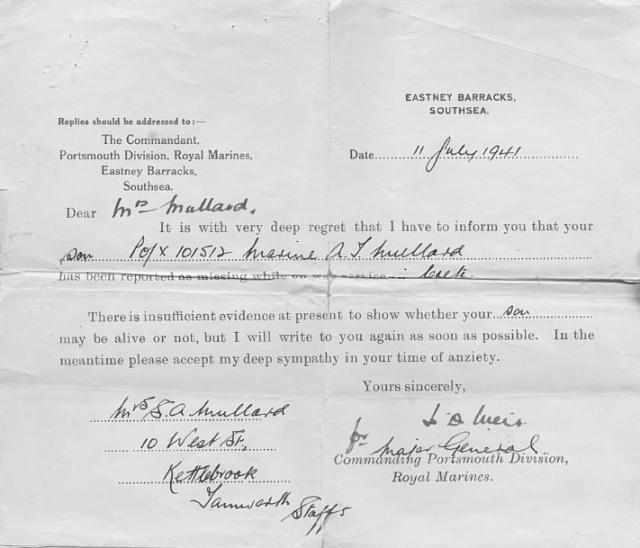 EASTNEY BARRACKS,
SOUTHSEA.
Replies should be addressed to:—
The Commandant,
Portsmouth Division, Royal Marines,
Eastney Barracks,
Southsea.
Date 11 July 1941
Dear Mrs Mullard,
It is with very deep regret that I have to inform you that your
son Po/X 101512 Marine A. J. Mullard
has been reported as missing while on war service in Crete
There is insufficient evidence at present to show whether your son
may be alive or not, but I will write to you again as soon as possible. In the
meantime please accept my deep sympathy in your time of anziety.
Yours sincerely,
for Major General
Commanding Portsmouth Division,
Royal Marines.
Mrs S. A. Mullard
10 West St,
Kettlebrook
Tamworth Staffs